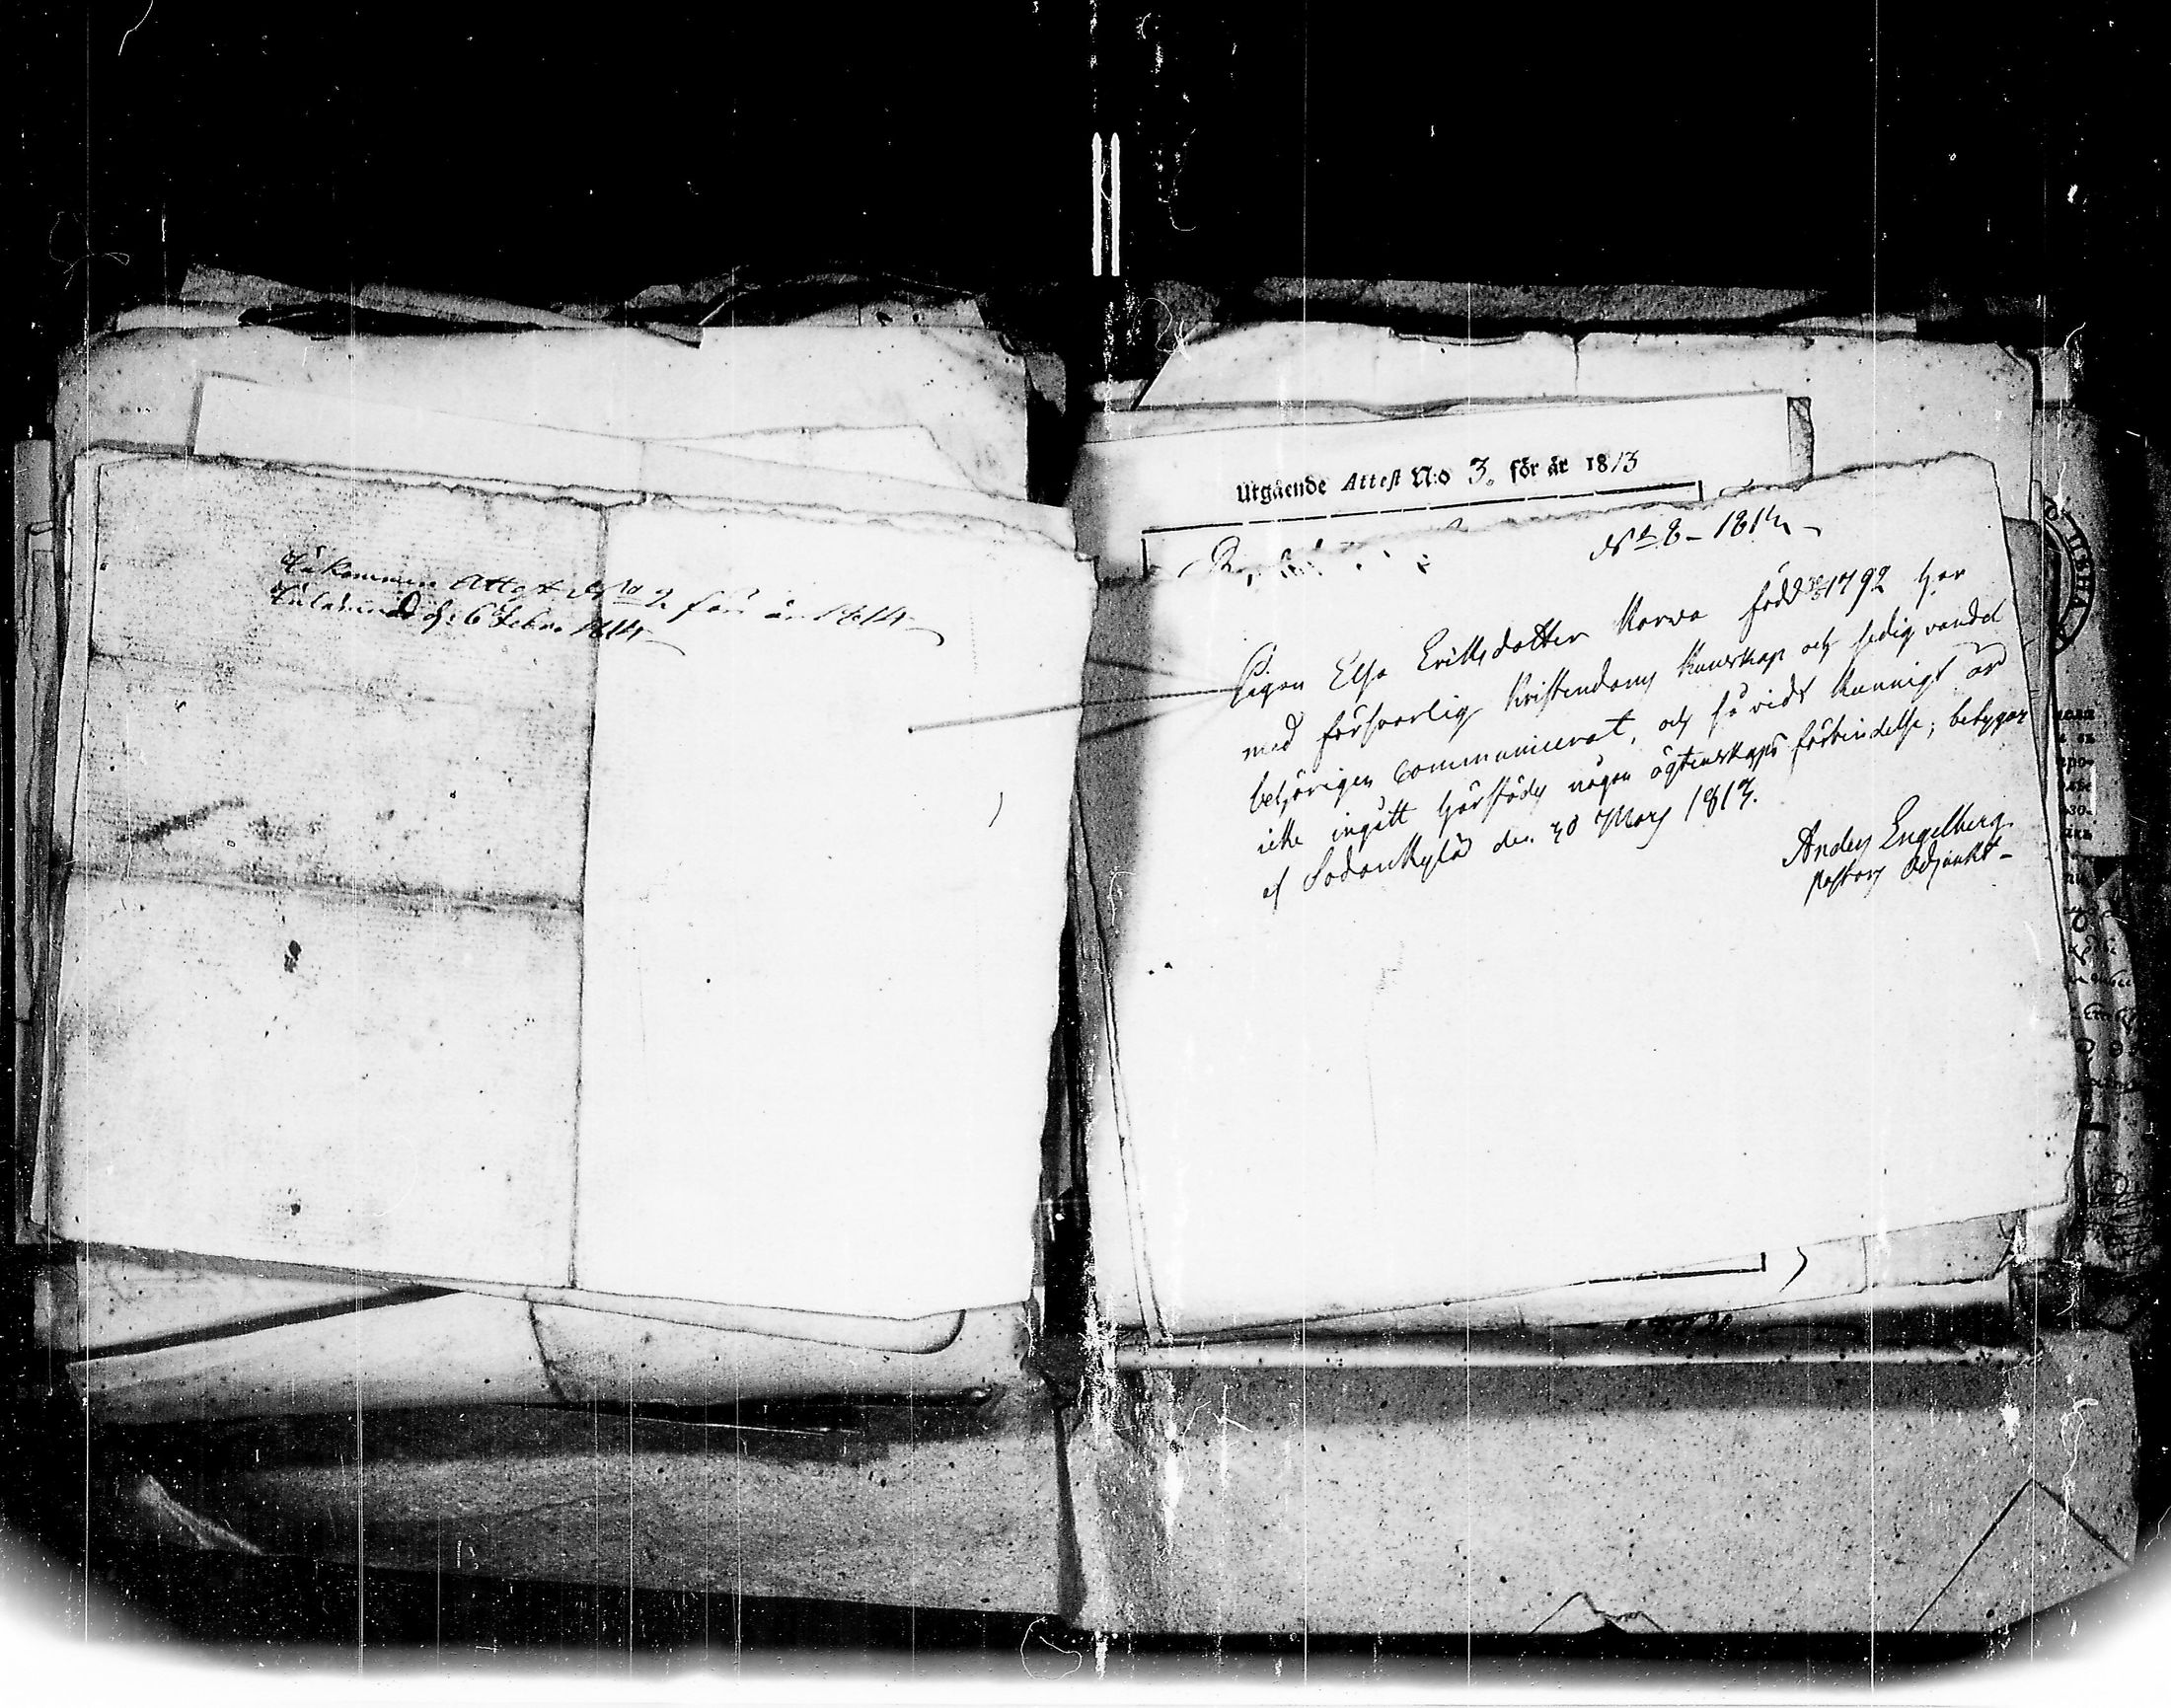 Inkommen Attest No 2 för år 1814
Inlemnad d: 6 Febr. 1814
Utgående Attest N:o 3. för år 1813
No 8 - 1814
Pigan Elsa Eriksdotter Korva född 1792 har
med försvarlig Kristendoms kunskap och sedig vandel
behörigen communicerat, och så vidt kunnigt är
icke ingått härstädes någon ägtenskaps förbindelse; betygar
af Sodankylä den 30 Mars 1813.
Anders Engelberg
pastors Adjunkt